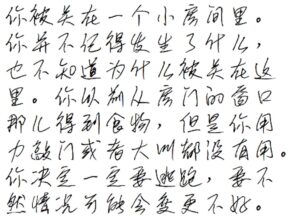 你被关在一个小房间里。
你并不记得发生了什么,
也不知道为什么被关在这
里。你以前从房门的窗口
那儿得到食物,但是你用
力敲门或者大叫都没有用。
你决定一定要逃跑,要不
然情况可能会变更不好。